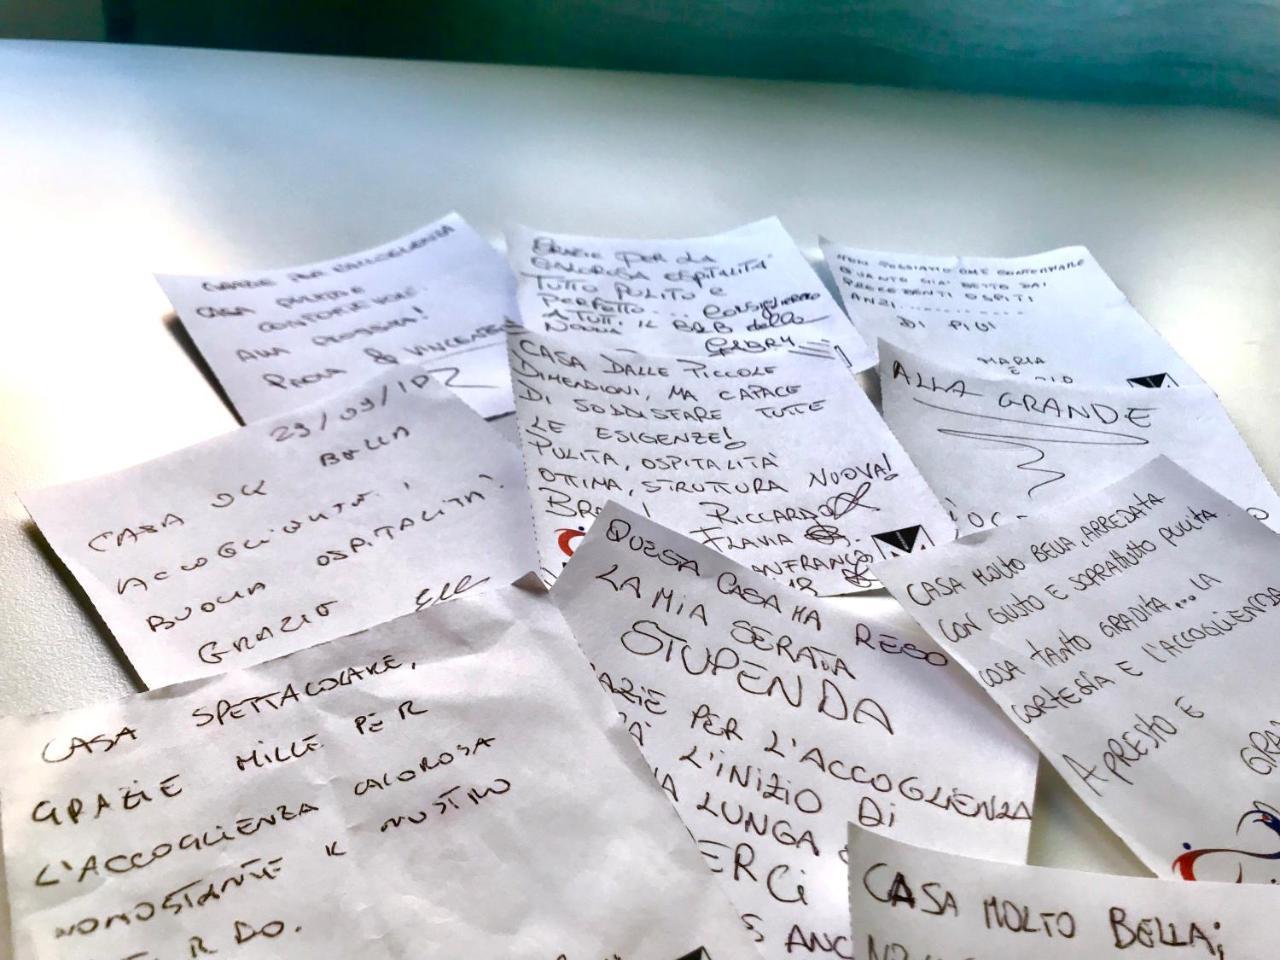 GRAZIE PER L'ACCOGLIENZA
CASA PULITA E
CONFORTEVOLE.
ALLA PROSSIMA!
PAOLA & VINCENZO
GRAZIE PER LA
CALOROSA OSPITALITÀ
TUTTO PULITO E
PERFETTO... CONSIGLIEREMO
A TUTTI IL B&B della
NONNA
GABRY
NON POSSIAMO CHE CONFERMARE
QUANTO GIA' DETTO DAI
PRECEDENTI OSPITI
ANZI...........
DI PIÙ!
MARIA
E
29/09/
CASA OK BELLA
ACCOGLIENTE,
BUONA OSPITALITÀ!
GRAZIE
CASA DALLE PICCOLE
DIMENSIONI, MA CAPACE
DI SODDISFARE TUTTE
LE ESIGENZE!
PULITA, OSPITALITÀ
OTTIMA, STRUTTURA NUOVA!
RICCARDO
FLAVIA
ANFRANCO
ALLA GRANDE
CASA MOLTO BELLA, ARREDATA
CON GUSTO E SOPRATTUTTO PULITA.
COSA TANTO GRADITA... LA
CORTESIA E L'ACCOGLIENZA
A PRESTO E
GRA
CASA SPETTACOLARE,
GRAZIE MILLE PER
L'ACCOGLIENZA CALOROSA
NONOSTANTE IL NOSTRO
RDO.
QUESTA CASA HA RESO
LA MIA SERATA
STUPENDA
AZIE PER L'ACCOGLIENZA
L'INIZIO DI
A LUNGA
ERCI
S ANC
CASA MOLTO BELLA;